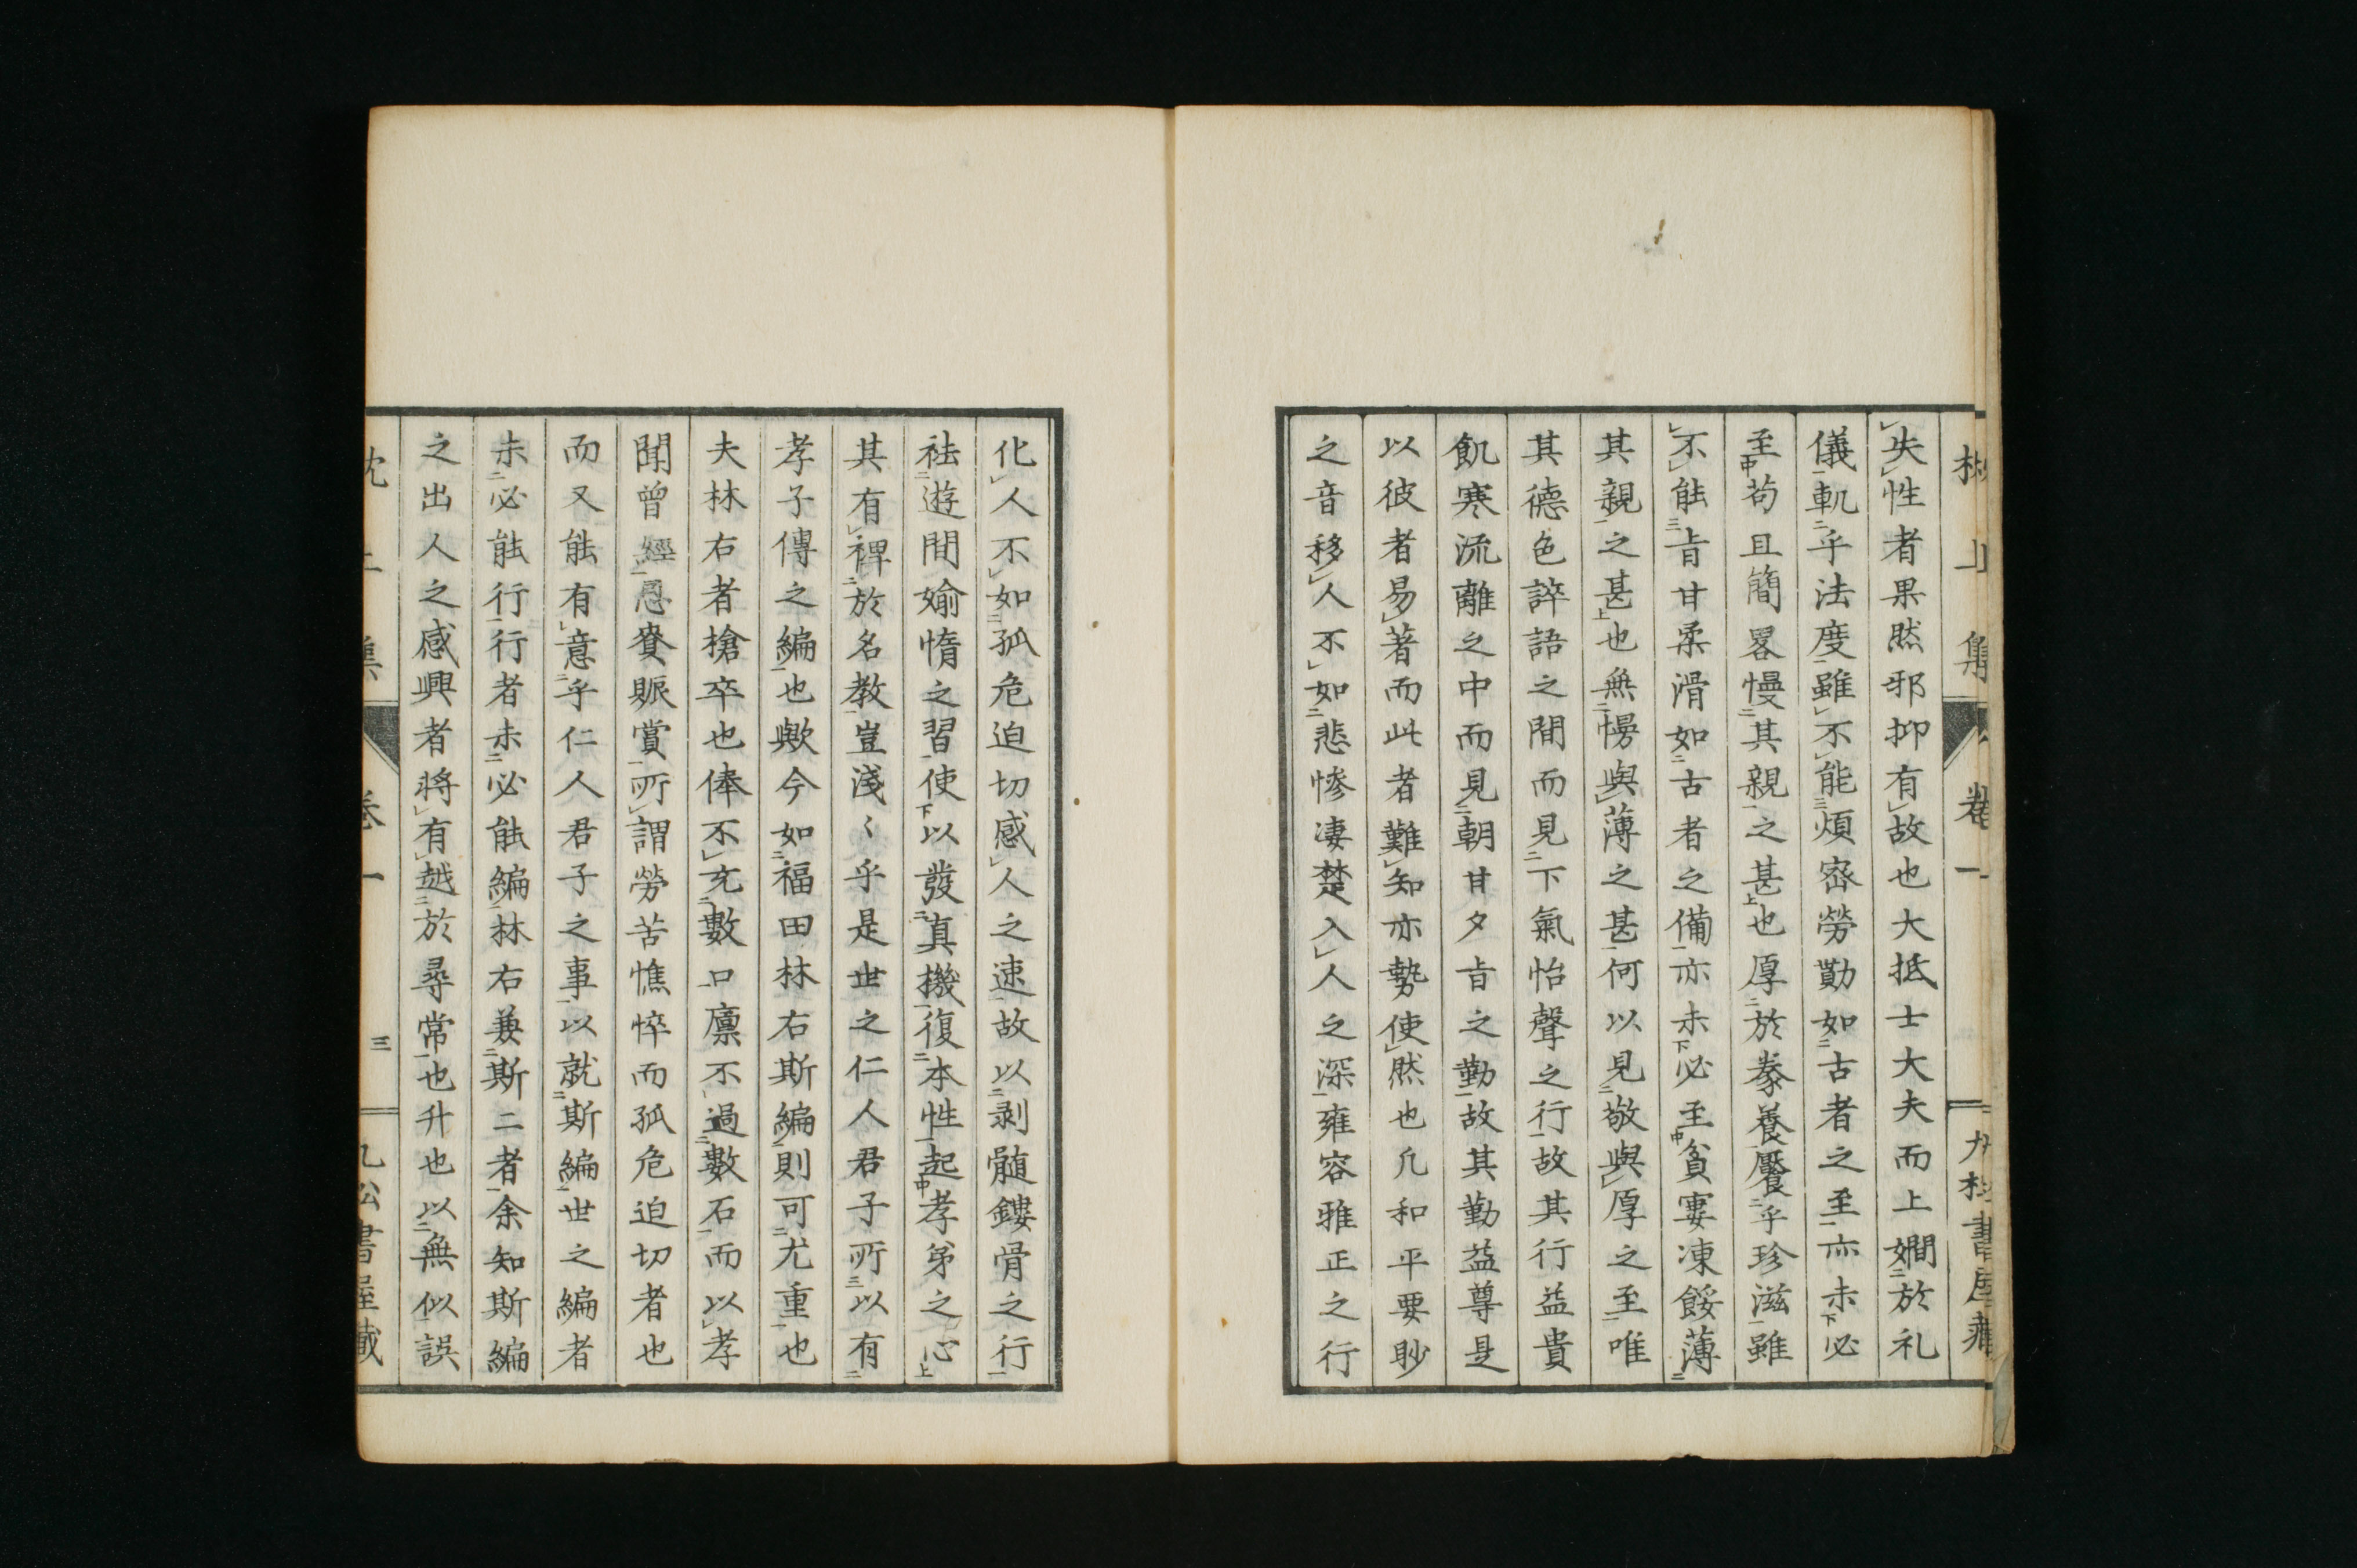 失性者果然邪抑有故也大抵士大夫而上嫺於礼
儀軌乎法度雖不能煩宻勞勤如古者之至亦未必
至苟且簡畧慢其親之甚也厚於豢養饜乎珍滋雖
不能旨甘柔滑如古者之備亦未必至貧寠凍餒薄
其親之甚也無慢與薄之甚何以見敬與厚之至唯
其德色誶語之間而見下氣怡聲之行故其行益貴
飢寒流離之中而見朝甘夕旨之勤故其勤益尊是
以彼者易著而此者難知亦勢使然也凢和平要眇
之音移人不如悲慘凄楚入人之深雍容雅正之行
化人不如孤危迫切感人之速故以剥髄鏤骨之行
祛遊閒媮惰之習使以發真機復本性起孝弟之心
其有裨於名教豈淺〻乎是世之仁人君子所以有
孝子傳之編也歟今如福田林右斯編則可尤重也
夫林右者搶卒也俸不充數口廩不過數石而以孝
聞曾經恩賚賑賞所謂勞苦憔悴而孤危迫切者也
而又能有意乎仁人君子之事以就斯編世之編者
未必能行行者未必能編林右兼斯二者余知斯編
之出人之感興者将有越於尋常也升也以無似誤
卷一
三
卷一